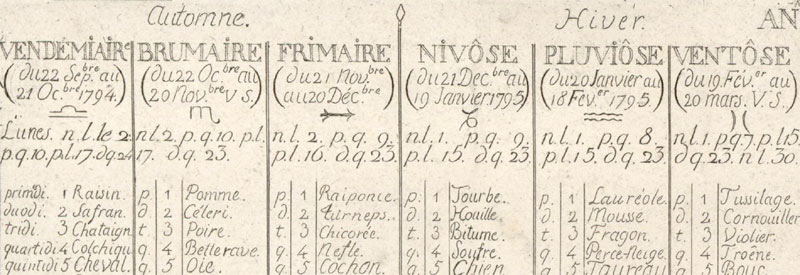 Automne. Hiver. AN
VENDÉMIAIRE BRUMAIRE FRIMAIRE NIVÔSE PLUVIÔSE VENTÔSE
(du 22 Sep.bre au (du 22 Oc.bre au (du 21 Nov.bre (du 21 Dec.bre au (du 20 Janvier au (du 19. Fév.er au
21 Oc.bre 1794.) 20 Nov.bre V S.) au 20 Déc.bre) 19 Janvier 1795) 18 Fév.er 1795.) 20 mars. V. S.)
Lunes. n.l. le 2. n.l. 2, p.q. 10. p.l. n.l. 2. p.q. 9. n.l. 1. p.q. 9. n.l. 1. p.q. 8. n.l. 1. p.q. 7. p.l. 15.
p.q. 10. p.l. 17. d.q. 24 17. d.q. 23. p.l. 16. d.q. 23. p.l. 15. d.q. 23. p.l. 15. d.q. 23 d.q. 23. n.l. 30.
primdi. 1 Raisin. p. 1 Pomme. p. 1 Raiponce. p. 1 Tourbe. p. 1 Lauréole. p. 1 Tussilage.
duodi. 2 Safran. d. 2 Céleri. d. 2 turneps. d. 2 Houille. d. 2 Mousse. d. 2 Cornouiller
tridi. 3 Chataign t. 3 Poire. t. 3 Chicorée. t. 3 Bitume. t. 3 Fragon. t. 3 Violier.
quartidi 4 Colchiqu q. 4 Betterave. q. 4 Nefle. q. 4 Soufre. q. 4 Perce-Neige. q. 4 Troène.
quintidi 5 Cheval. q. 5 Oie. q. 5 Cochon. q. 5 Chien q. 5 Taureau q. 5 Bouc.